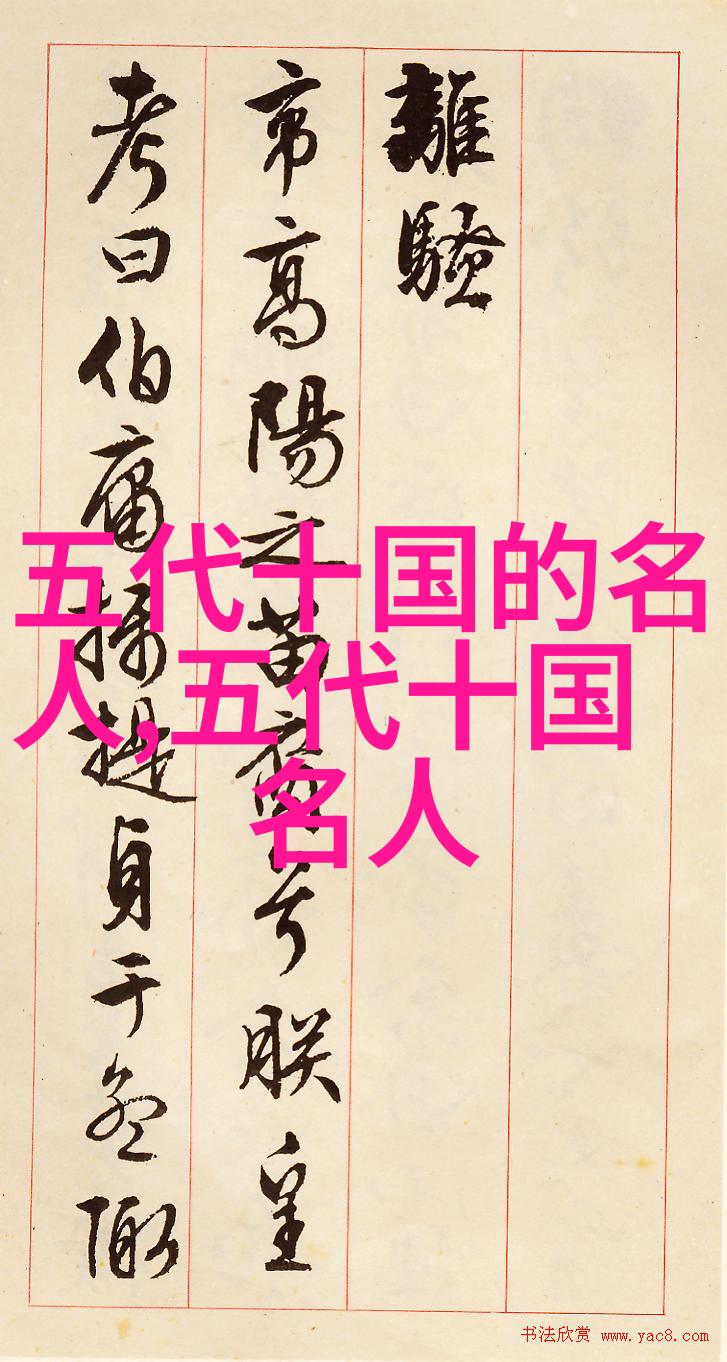 離騷
帝高陽之苗裔兮朕皇
考曰伯庸攝提貞于孟陬
五代十国的名
人,五代十国
名人
书法欣赏 www.yac8.com